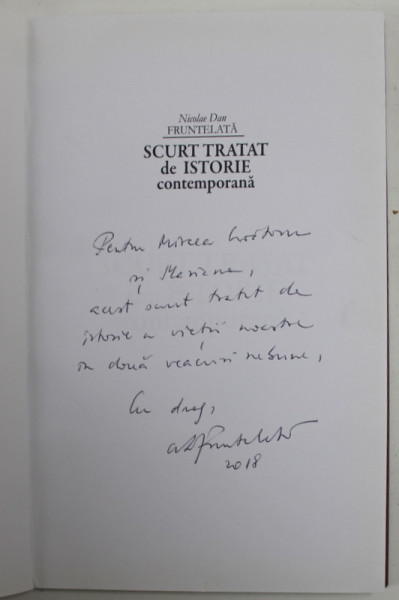 Nicolae Dan
FRUNTELATĂ
SCURT TRATAT
de ISTORIE
contemporană
Pentru Mircea
și Mariana,
acest scurt tratat de
istorie a vieții noastre
în două veacuri nebune,
Cu drag,
NDFruntelată
2018